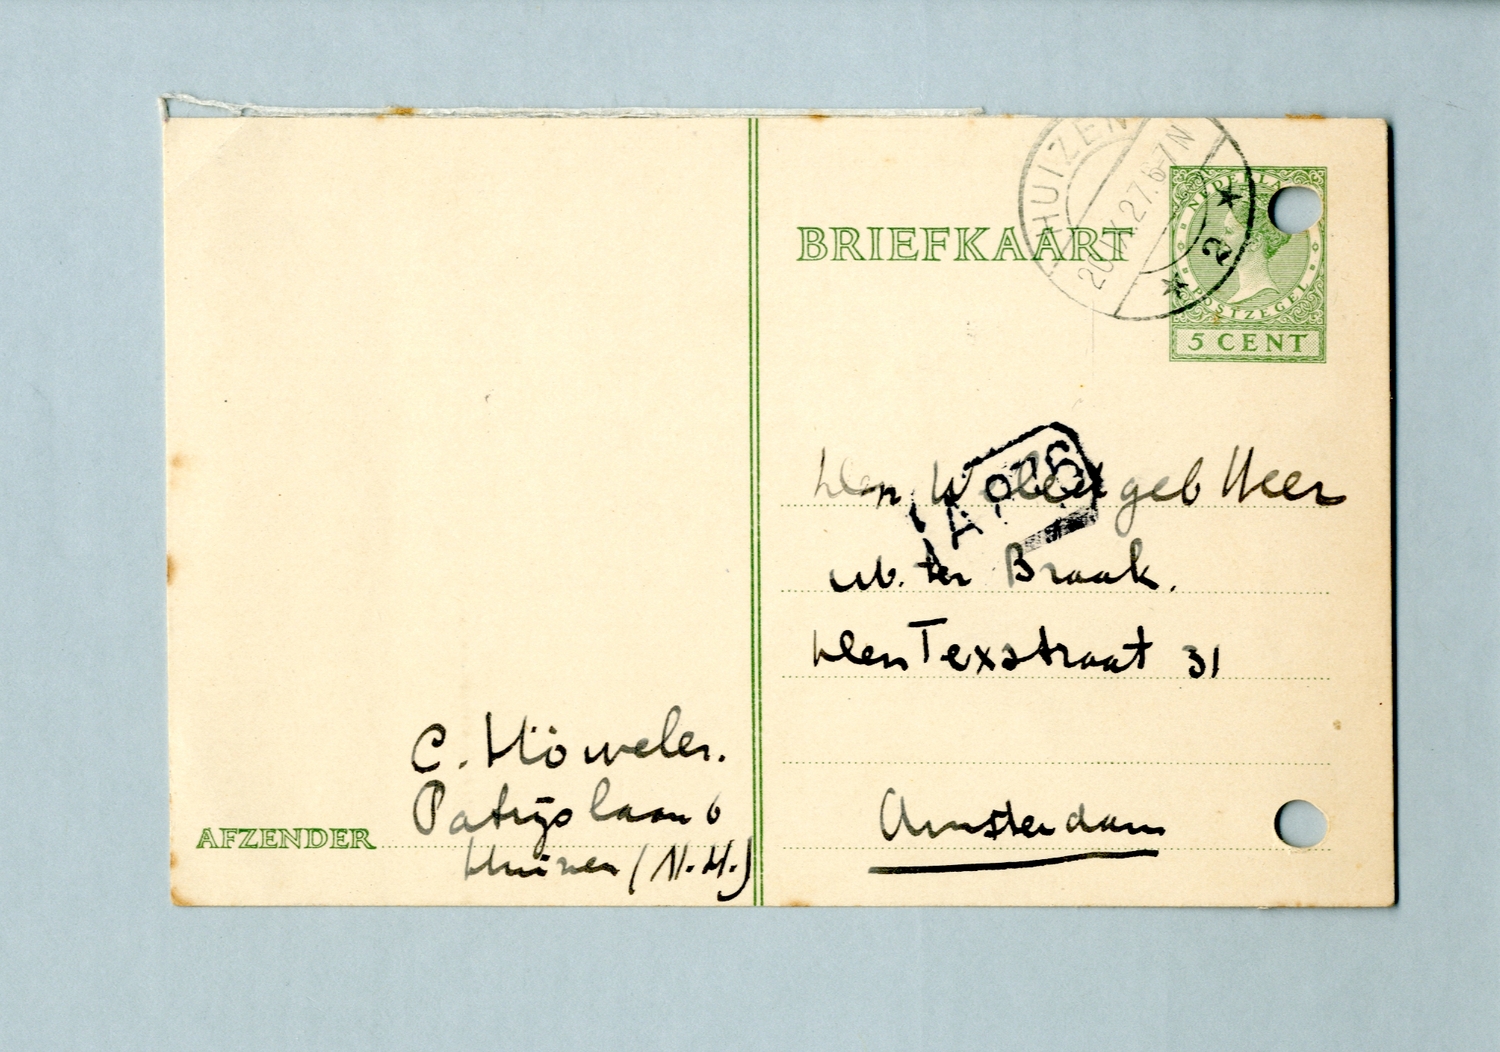 HUIZEN
20.X.27.6-7N
2
BRIEFKAART
NEDERLAND
POSTZEGEL
5 CENT
Den WelEd geb Heer
M. ter Braak.
den Texstraat 31
Amsterdam
C. Höweler.
Patrijslaan 6
AFZENDER
Huizen (N.H.)